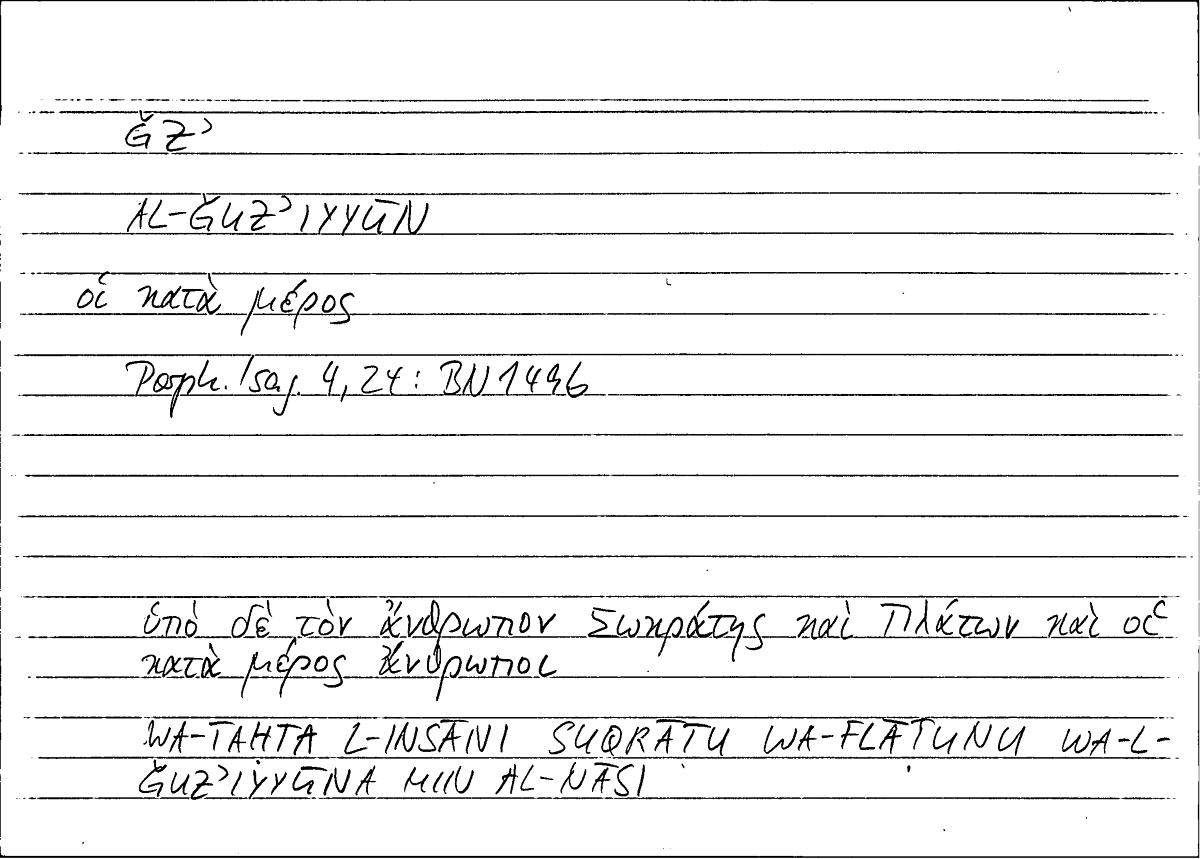 ǦZʾ
AL-ǦUZʾIYYŪN
οἱ κατὰ μέρος
Porph. Isag. 4, 24: BN 1496
ὑπὸ δὲ τὸν ἄνθρωπον Σωκράτης καὶ Πλάτων καὶ οἱ
κατὰ μέρος ἄνθρωποι
WA-TAḤTA L-INSĀNI SUQRĀṬU WA-FLĀṬUNU WA-L-
ǦUZʾIYYŪNA MIN AL-NĀSI